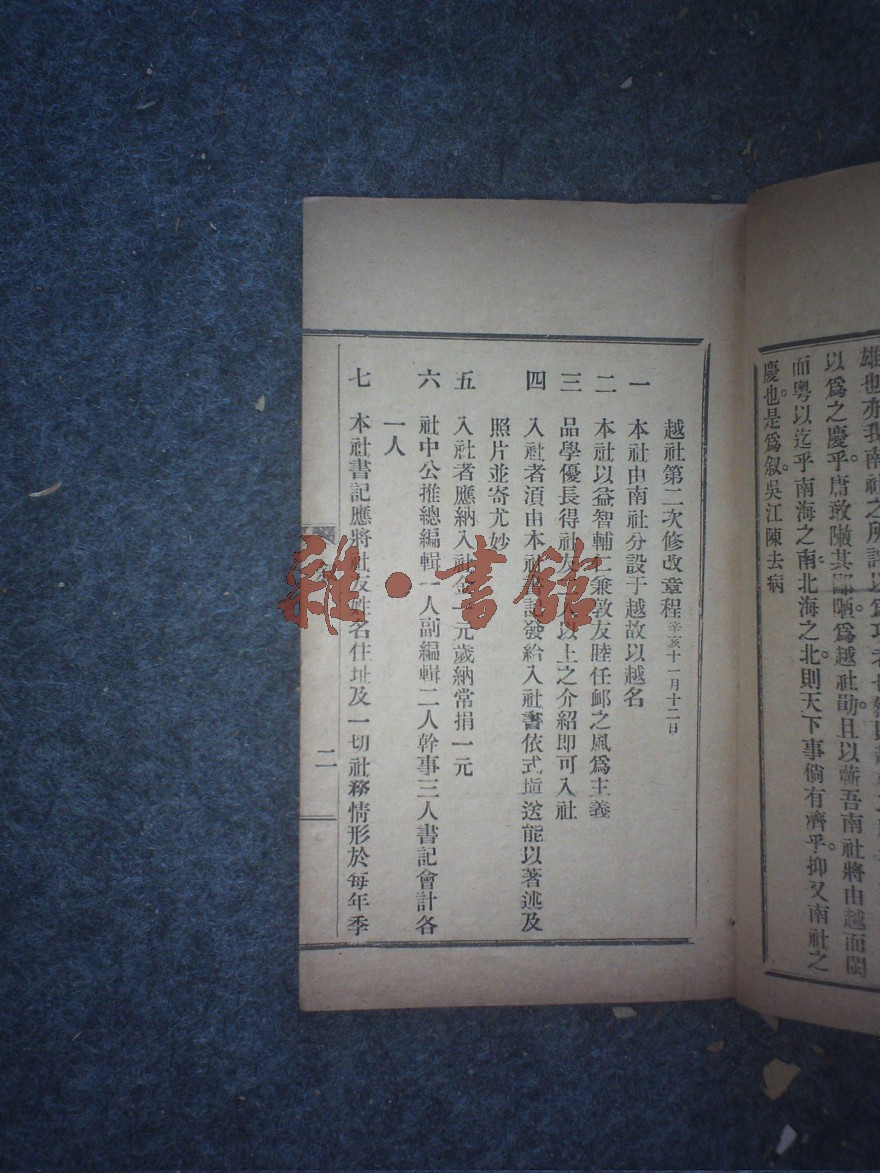 雄也亦我南社之所
以爲之慶乎。唐敢
爲越社勛且以蘄吾南社將由越而閩
而粵以迄乎南海之南北海之北則天下事倘有濟乎。抑又南社之
慶也。是爲叙。吳江陳去病
越社第二次修改章程 辛亥十一月十二日
一 本社由南社分設于越故以越名
二 本社以益智輔仁兼敦友睦任䘏之風爲主義
三 品學優長得社友 人以上之介紹即可入社
四 入社者須由本社書記發給入社書依式塡送能以著述及
照片並寄尤妙
五 入社者應納入社金一元歲納常捐一元
六 社中公推總編輯一人副編輯二人幹事三人書記會計各
一人
七 本社書記應將社友姓名住址及一切社務情形於每年季
二
雜·書館